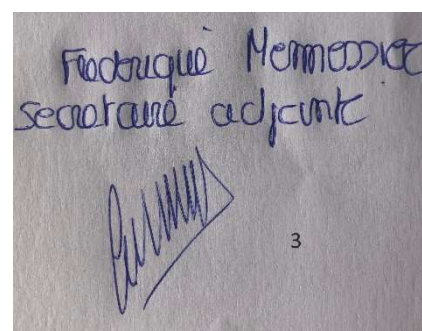 Frederique Mennessier
secretaire adjointe
3